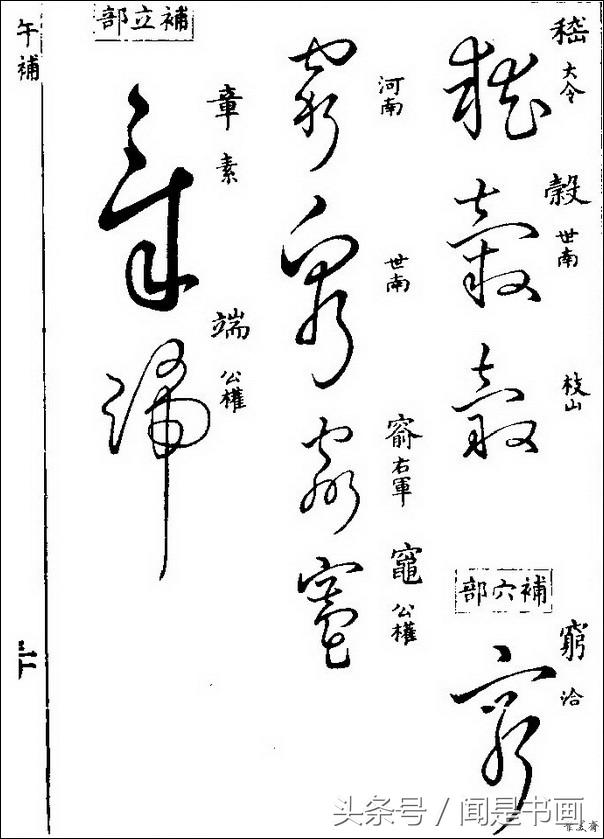 嵇 大令
穀 世南
枝山
補穴部
窮 洽
河南
世南
窬 右軍
竈 公權
補立部
章 素
端 公權
午補
头条号 / 闻是书画